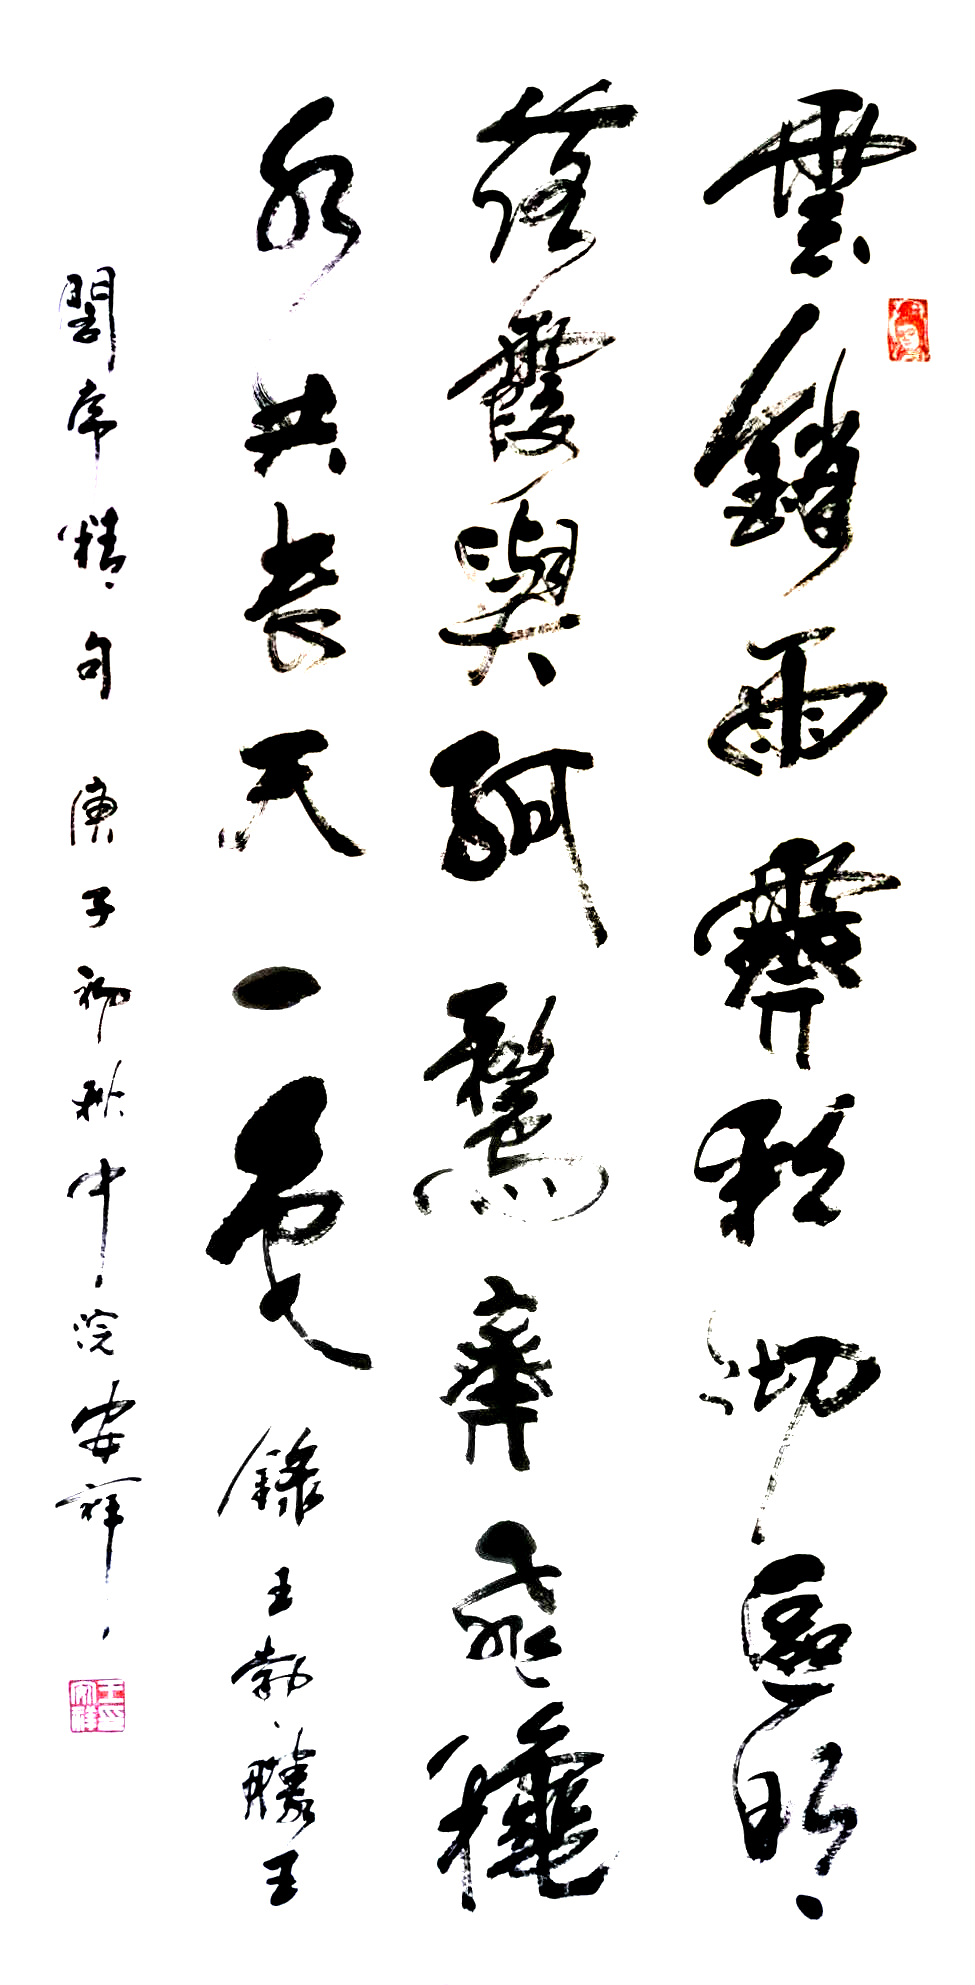 雲銷雨霽彩沏區明
落霞與孤鶩齊飛穐
水共長天一色錄王勃勝王
閣序精句庚子初秋中浣安祥